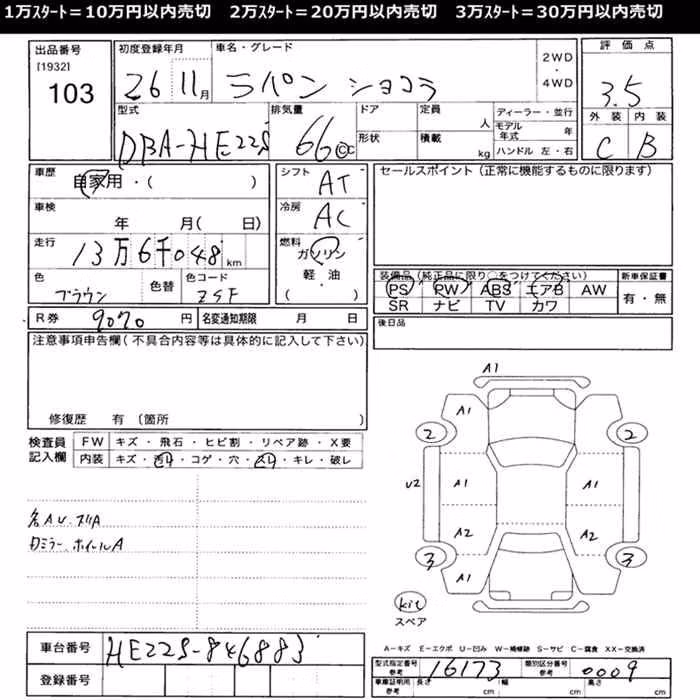 1万ｽﾀｰﾄ＝10万円以内売切　2万ｽﾀｰﾄ＝20万円以内売切　3万ｽﾀｰﾄ＝30万円以内売切
出品番号 初度登録年月 車名・グレード 2WD・4WD 評価点
[1932]
103 26 11月 ラパン ショコラ 3.5
型式 排気量 ドア 定員 人 ディーラー・並行 外装 内装
DBA-HE22S 66 CC 形状 積載 kg モデル年式 年 C B
ハンドル 左・右
車歴 自家用・( ) シフト AT セールスポイント(正常に機能するものに限ります)
車検 年 月( 日) 冷房 AC
走行 13万6千048km 燃料 ガソリン
軽・油
( )
色 ブラウン 色替 色コード ZSF
装備品(純正品に限り○をつけてください) 新車保証書
PS PW ABS エアB AW 有・無
SR ナビ TV カワ
R券 9070円 名変通知期限 月 日 後日品
注意事項申告欄(不具合内容等は具体的に記入して下さい)
修復歴 有(箇所
検査員記入欄 FW キズ・飛石・ヒビ割・リペア跡・X要
内装 キズ・汚レ・コゲ・穴・スレ・キレ・破レ
A1
A1
2 2
U2 A1 A1
A2 A2
3 3
A1
kit
スペア
ミラー、ホイールA
A－キズ E－エクボ U－凹み W－補修跡 S－サビ C－腐食 XX－交換済
車台番号 HE22S-846883
型式指定番号 参考 16173 類別区分番号 参考 0009
登録番号
車庫証明用 参考 長さ cm 幅 cm 高さ cm